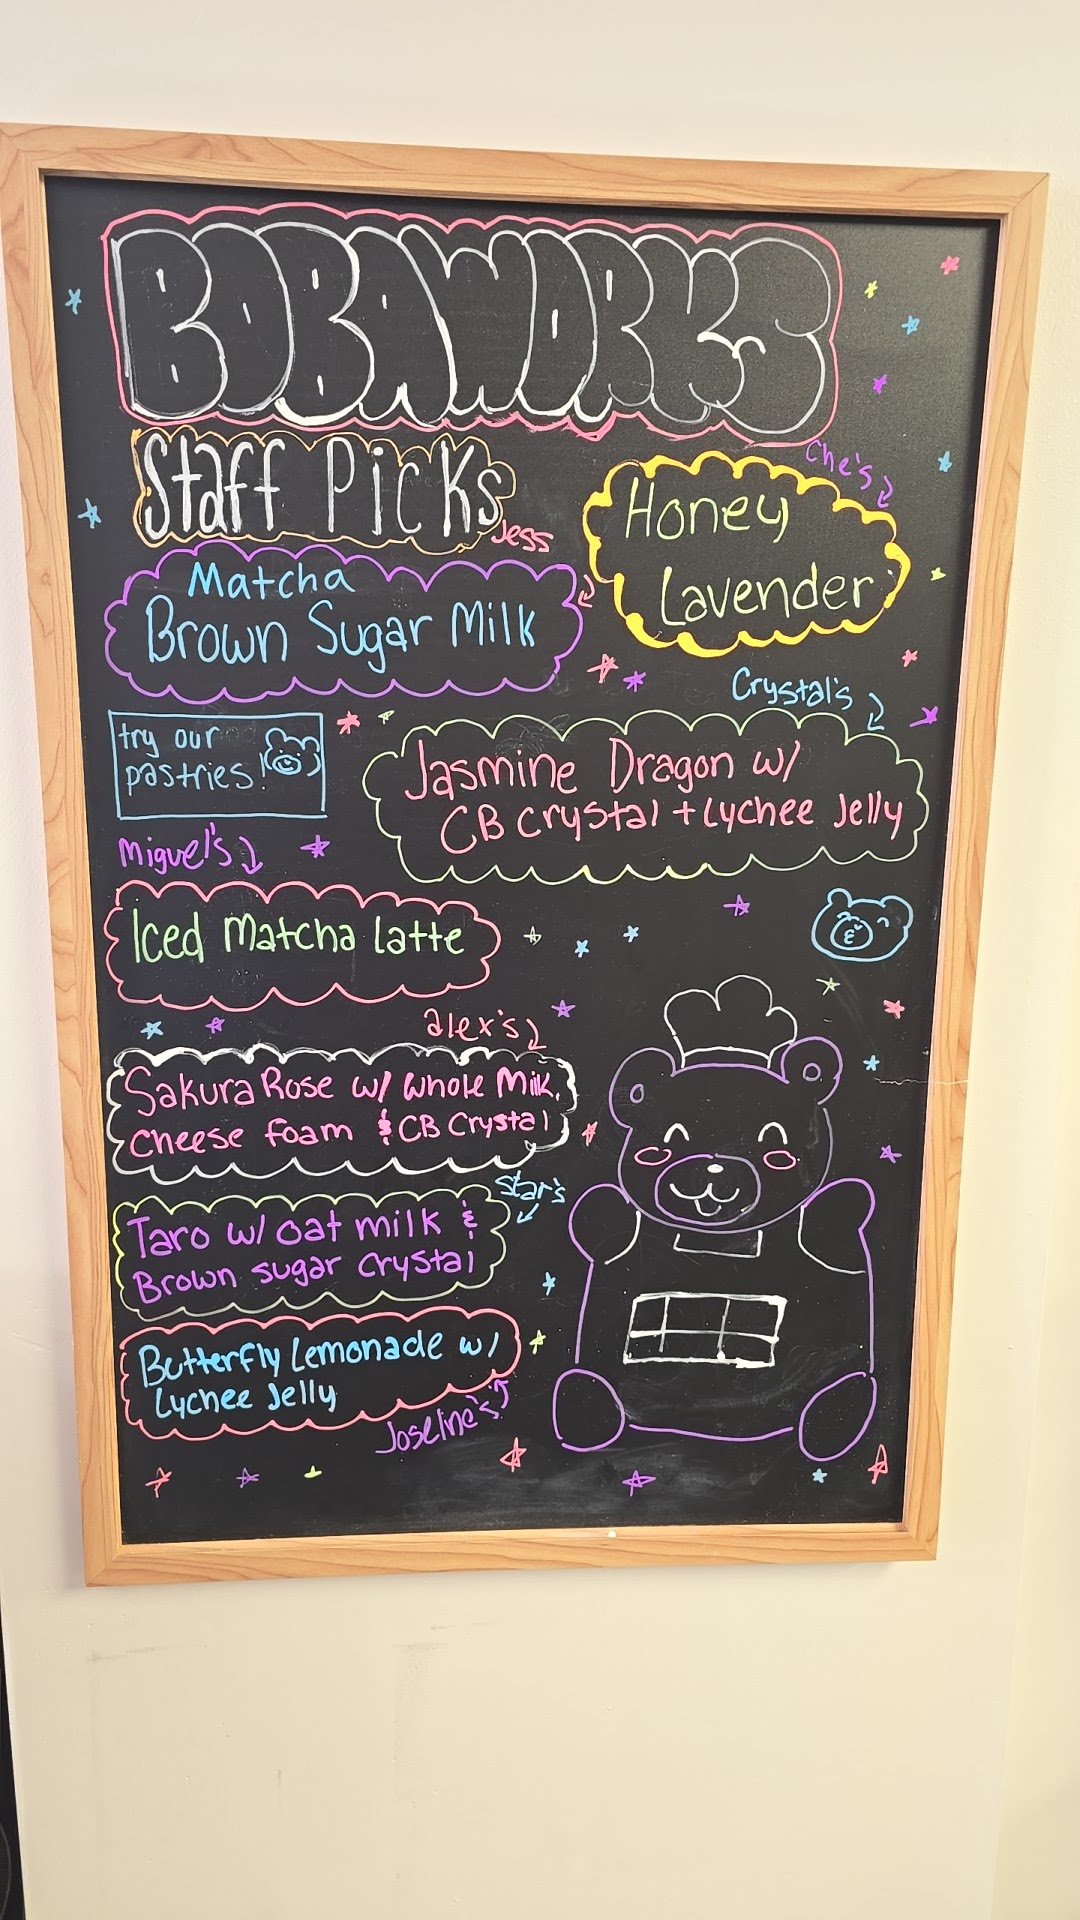 BOBAWORKS
Staff Picks
Jess
Matcha
Brown Sugar Milk
Che's
Honey
Lavender
Crystal's
Jasmine Dragon w/
CB Crystal + Lychee Jelly
try our
pastries!
Miguel's
Iced Matcha Latte
alex's
Sakura Rose w/ Whole Milk,
Cheese foam & CB Crystal
Star's
Taro w/ oat milk &
Brown sugar crystal
Butterfly Lemonade w/
Lychee Jelly
Joseline's